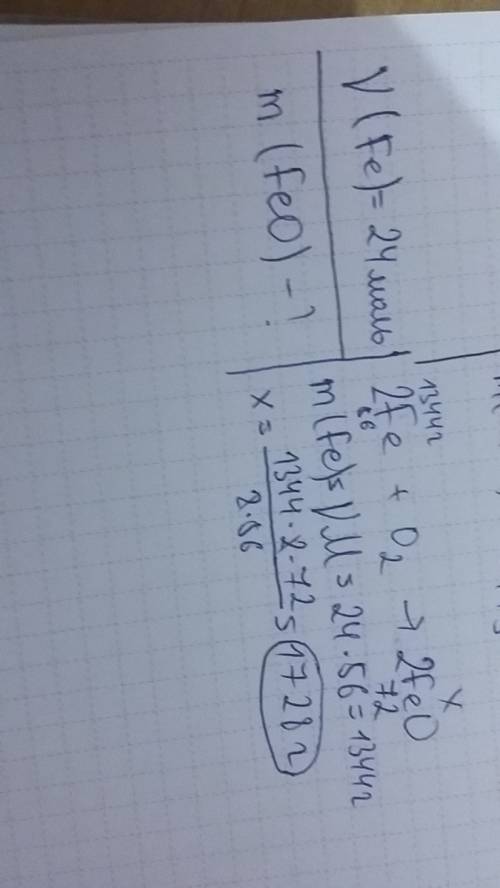 ν(Fe)=24моль
m(FeO)-?
1344г x
2Fe + O2 → 2FeO
56 72
m(Fe)=νM=24·56=1344г
x = 1344·2·72 = 1728г
2·56